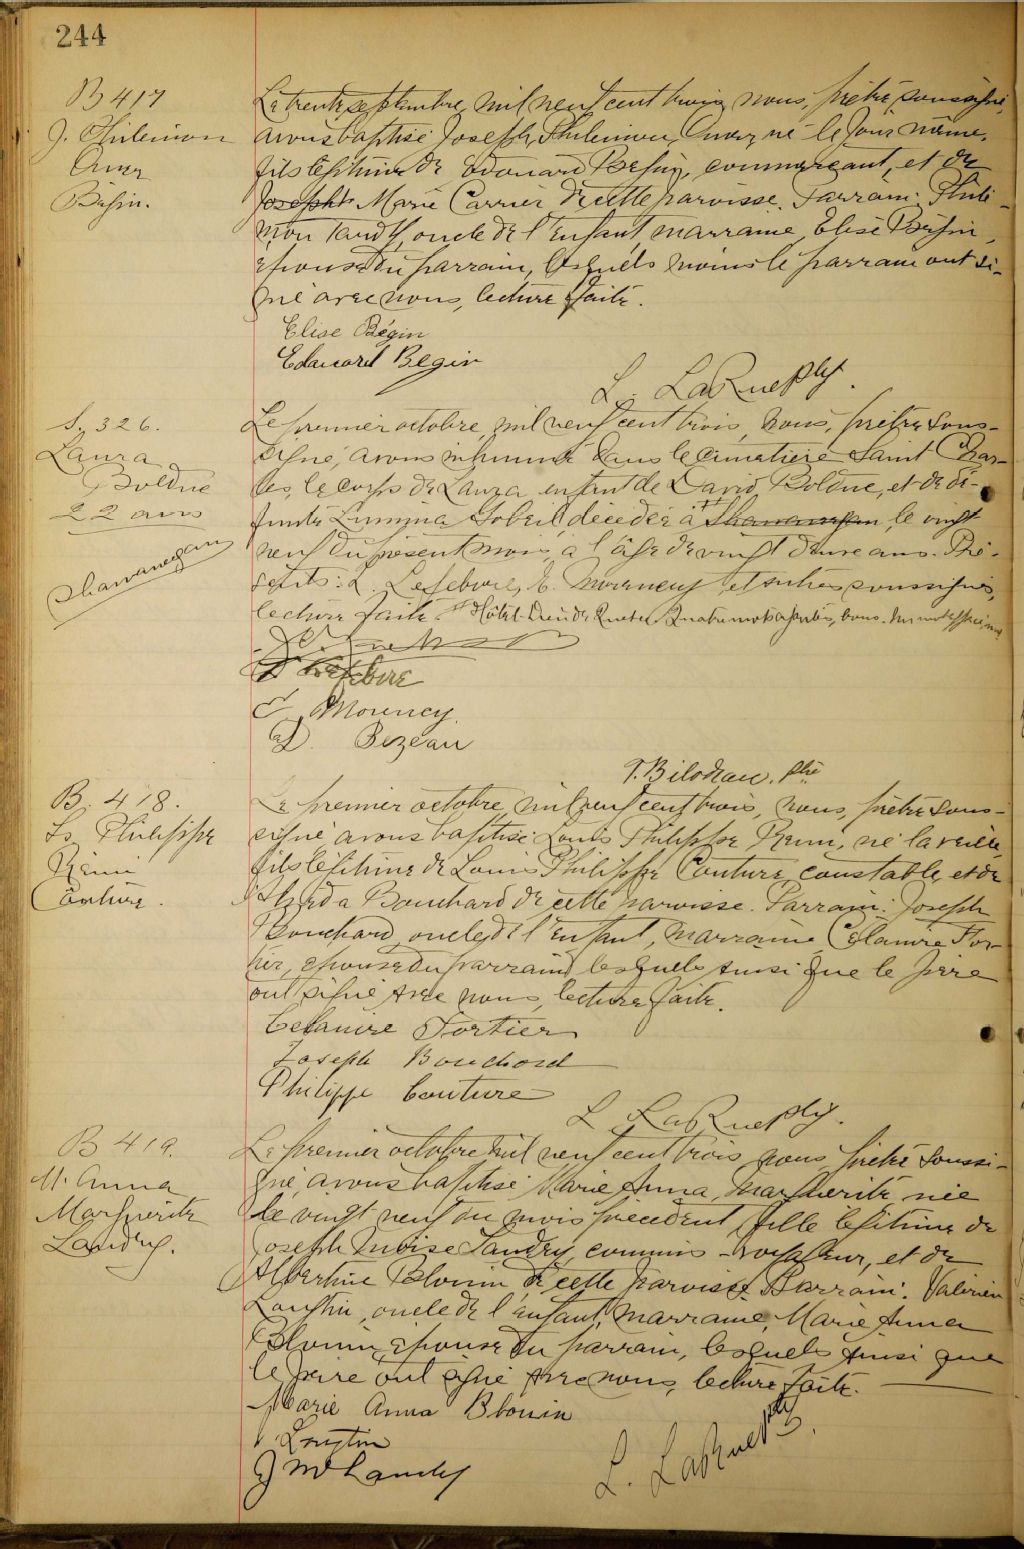 244
B 417
J. Philemon
Omer
Bégin.
Le trente septembre, mil neuf cent trois nous, prêtre soussigné,
avons baptisé Joseph, Philemon, Omer, né le jour même,
fils légitime de Edouard Bégin, commerçant, et de
Joseph Marie Carrier de cette paroisse. Parrain: Phile-
mon Tardif, oncle de l'enfant, marraine, Elise Bégin,
épouse du parrain, lesquels moins le parrain ont si-
gné avec nous, lecture faite.
Elise Bégin
Edouard Begin
L. LaRue Ptr.
S. 326.
Laura
Bolduc
22 ans
Shawanegan
Le premier octobre, mil neuf cent trois, nous, prêtre sous-
signé, avons inhumé dans le cimetière Saint Char-
les, le corps de Laura enfant de David Bolduc, et de dé-
funte Lumina Gobeil, décédée à Shawanegan, le vingt
neuf du présent mois, à l'âge de vingt deux ans. Pré-
sents: L. Lefebvre, E. et autres soussignés,
lecture faite. Hôtel-Dieu de Quebec Quatre mots ajoutés, bons.
Lefebvre
E. Mourney.
D. Bezeau
T. Bilodeau, ptre
B. 418.
Ls Philippe
Rémi
Couture.
Le premier octobre, mil neuf cent trois, nous, prêtre sous-
signé avons baptisé Louis Philippe Remi, né la veille,
fils légitime de Louis Philippe Couture, constable, et de
Bouchard de cette paroisse. Parrain: Joseph
Bouchard, oncle de l'enfant, marraine Celanire For-
tier, épouse du parrain, lesquels ainsi que le père
ont signé avec nous, lecture faite.
Celanire Fortier
Joseph Bouchard
Philippe Couture
L. LaRue Ptr.
B 419.
M. Anna
Marguerite
Landry.
Le premier octobre mil neuf cent trois nous, prêtre soussi-
gné, avons baptisé Marie Anna, Marguerite née
le vingt neuf du mois précédent, fille légitime de
Joseph Moïse Landry, commis-voyageur, et de
Albertine Blouin de cette paroisse. Parrain: Valérien
oncle de l'enfant, marraine, Marie Anna
Blouin, épouse du parrain, lesquels ainsi que
le père ont signé avec nous, lecture faite.
Marie Anna Blouin
J M Landry
L. LaRue Ptr.